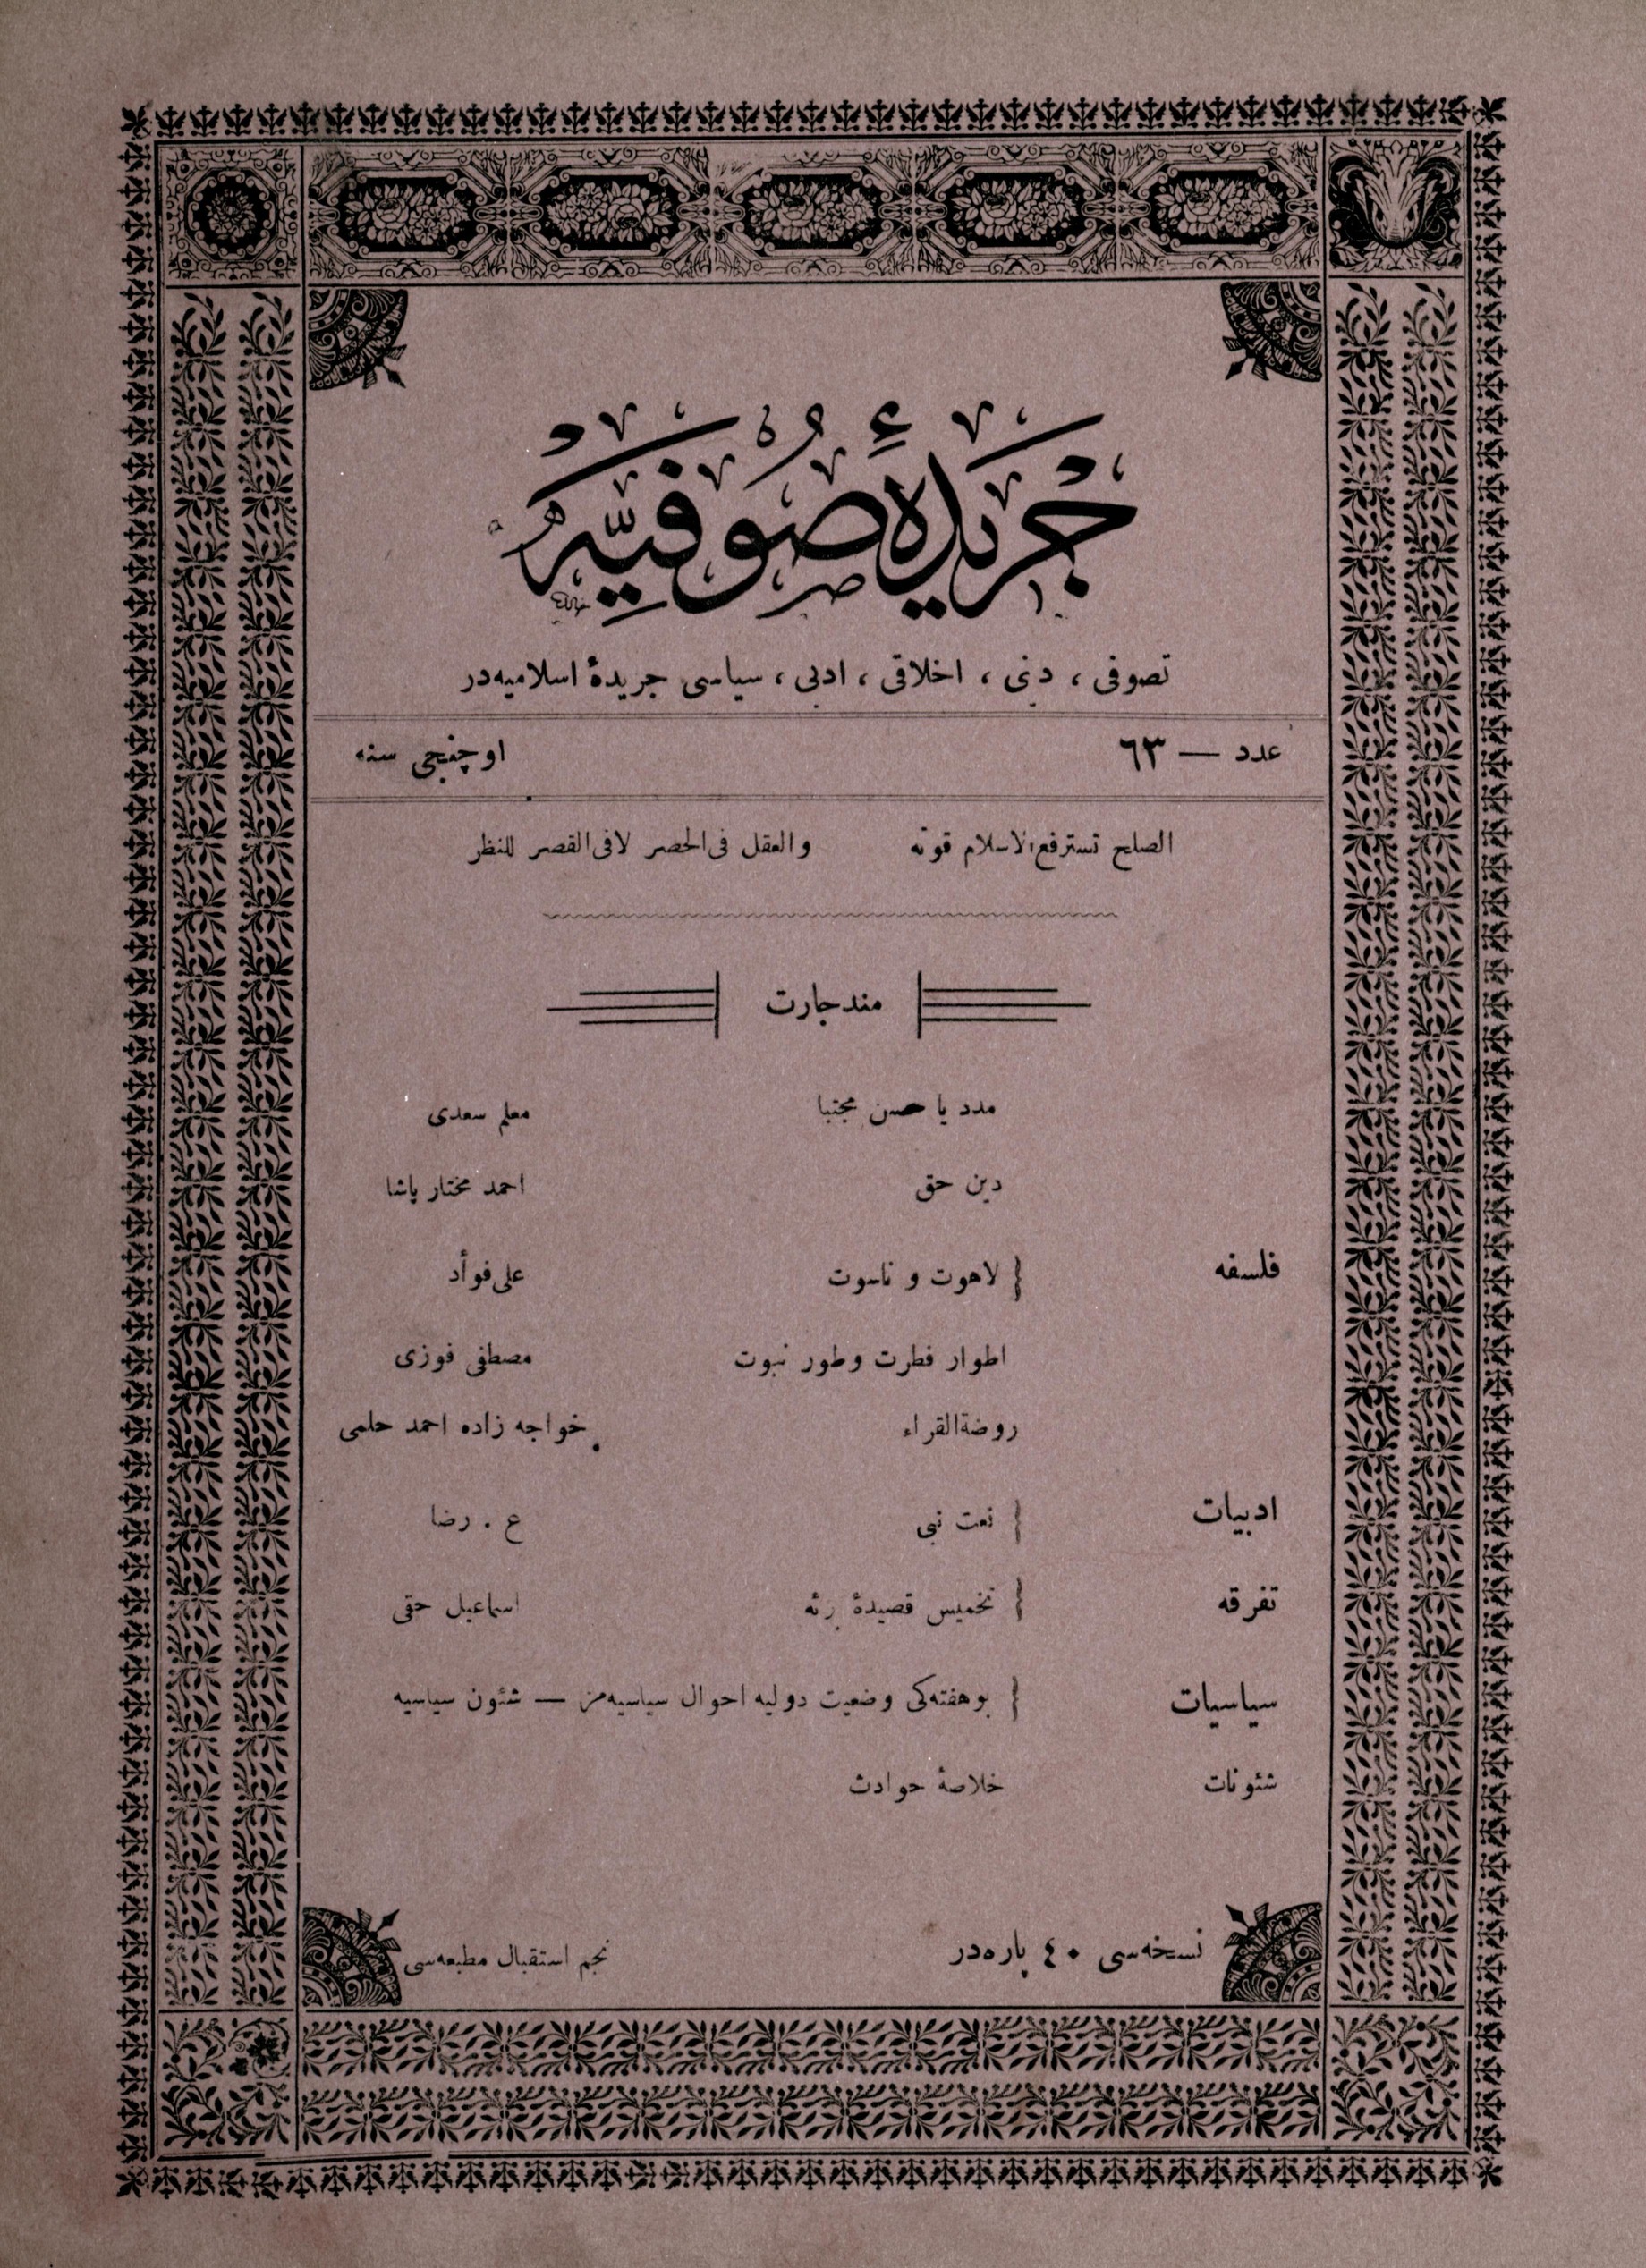 جريدۀ صوفيه
تصوفی ، دینی ، اخلاقی ، ادبی ، سیاسی جریدۀ اسلامیه‌در
عدد — ٦٣ اوچنجی سنه
الصلح تسترفع الاسلام قوته والعقل فی‌الحصر لافی‌القصر للنظر
مندجارت
مدد یا حسن مجتبا معلم سعدی
دین حق احمد مختار پاشا
فلسفه } لاهوت و ناسوت علی فوأد
اطوار فطرت وطور نبوت مصطفی فوزی
روضةالقراء خواجه زاده احمد حلمی
ادبیات } نعت نبی ع . رضا
تفرقه } تخمیس قصیدۀ اسماعیل حقی
سیاسیات } بوهفته‌کی وضعیت دولیه احوال سیاسیه‌مز — شئون سیاسیه
شئونات خلاصۀ حوادث
نسخه‌سی ٤٠ پاره‌در نجم استقبال مطبعه‌سی